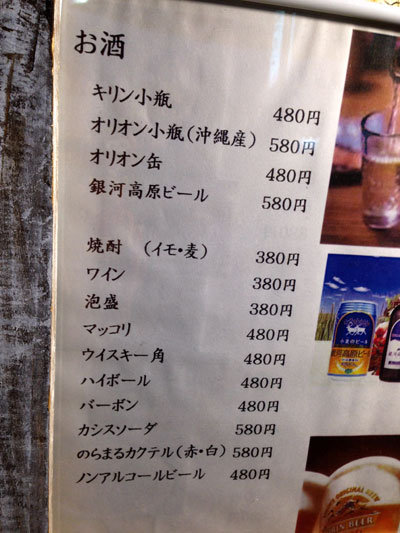 お酒
キリン小瓶 480円
オリオン小瓶(沖縄産) 580円
オリオン缶 480円
銀河高原ビール 580円
焼酎 (イモ・麦) 380円
ワイン 380円
泡盛 380円
マッコリ 480円
ウイスキー角 480円
ハイボール 480円
バーボン 480円
カシスソーダ 580円
のらまるカクテル(赤・白) 580円
ノンアルコールビール 480円
小麦のビール
銀河高原ビール
ORIGINAL BREW
KIRIN BEER